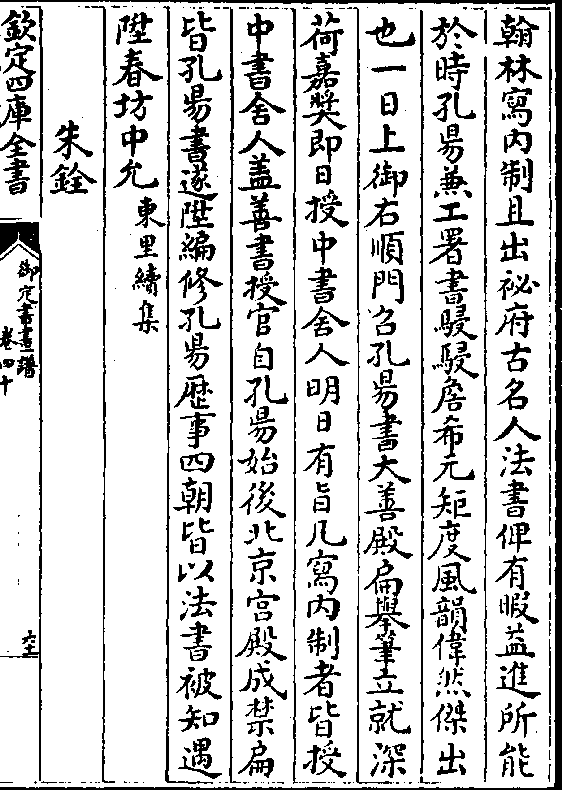 翰林寫内制且出祕府古名人法書俾有暇益進所能
於時孔昜兼工署書駸駸詹希元矩度風韻偉然傑出
也一日上御右順門召孔昜書大善殿扁舉筆立就深
荷嘉奬即日授中書舍人明日有旨凡寫内制者皆授
中書舍人盖善書授官自孔昜始後北京宫殿成禁扁
皆孔昜書遂陞編修孔昜歴事四朝皆以法書被知遇
陞春坊中允東里續集
朱銓
欽定四庫全書
御定書畫譜
卷四十
六十一